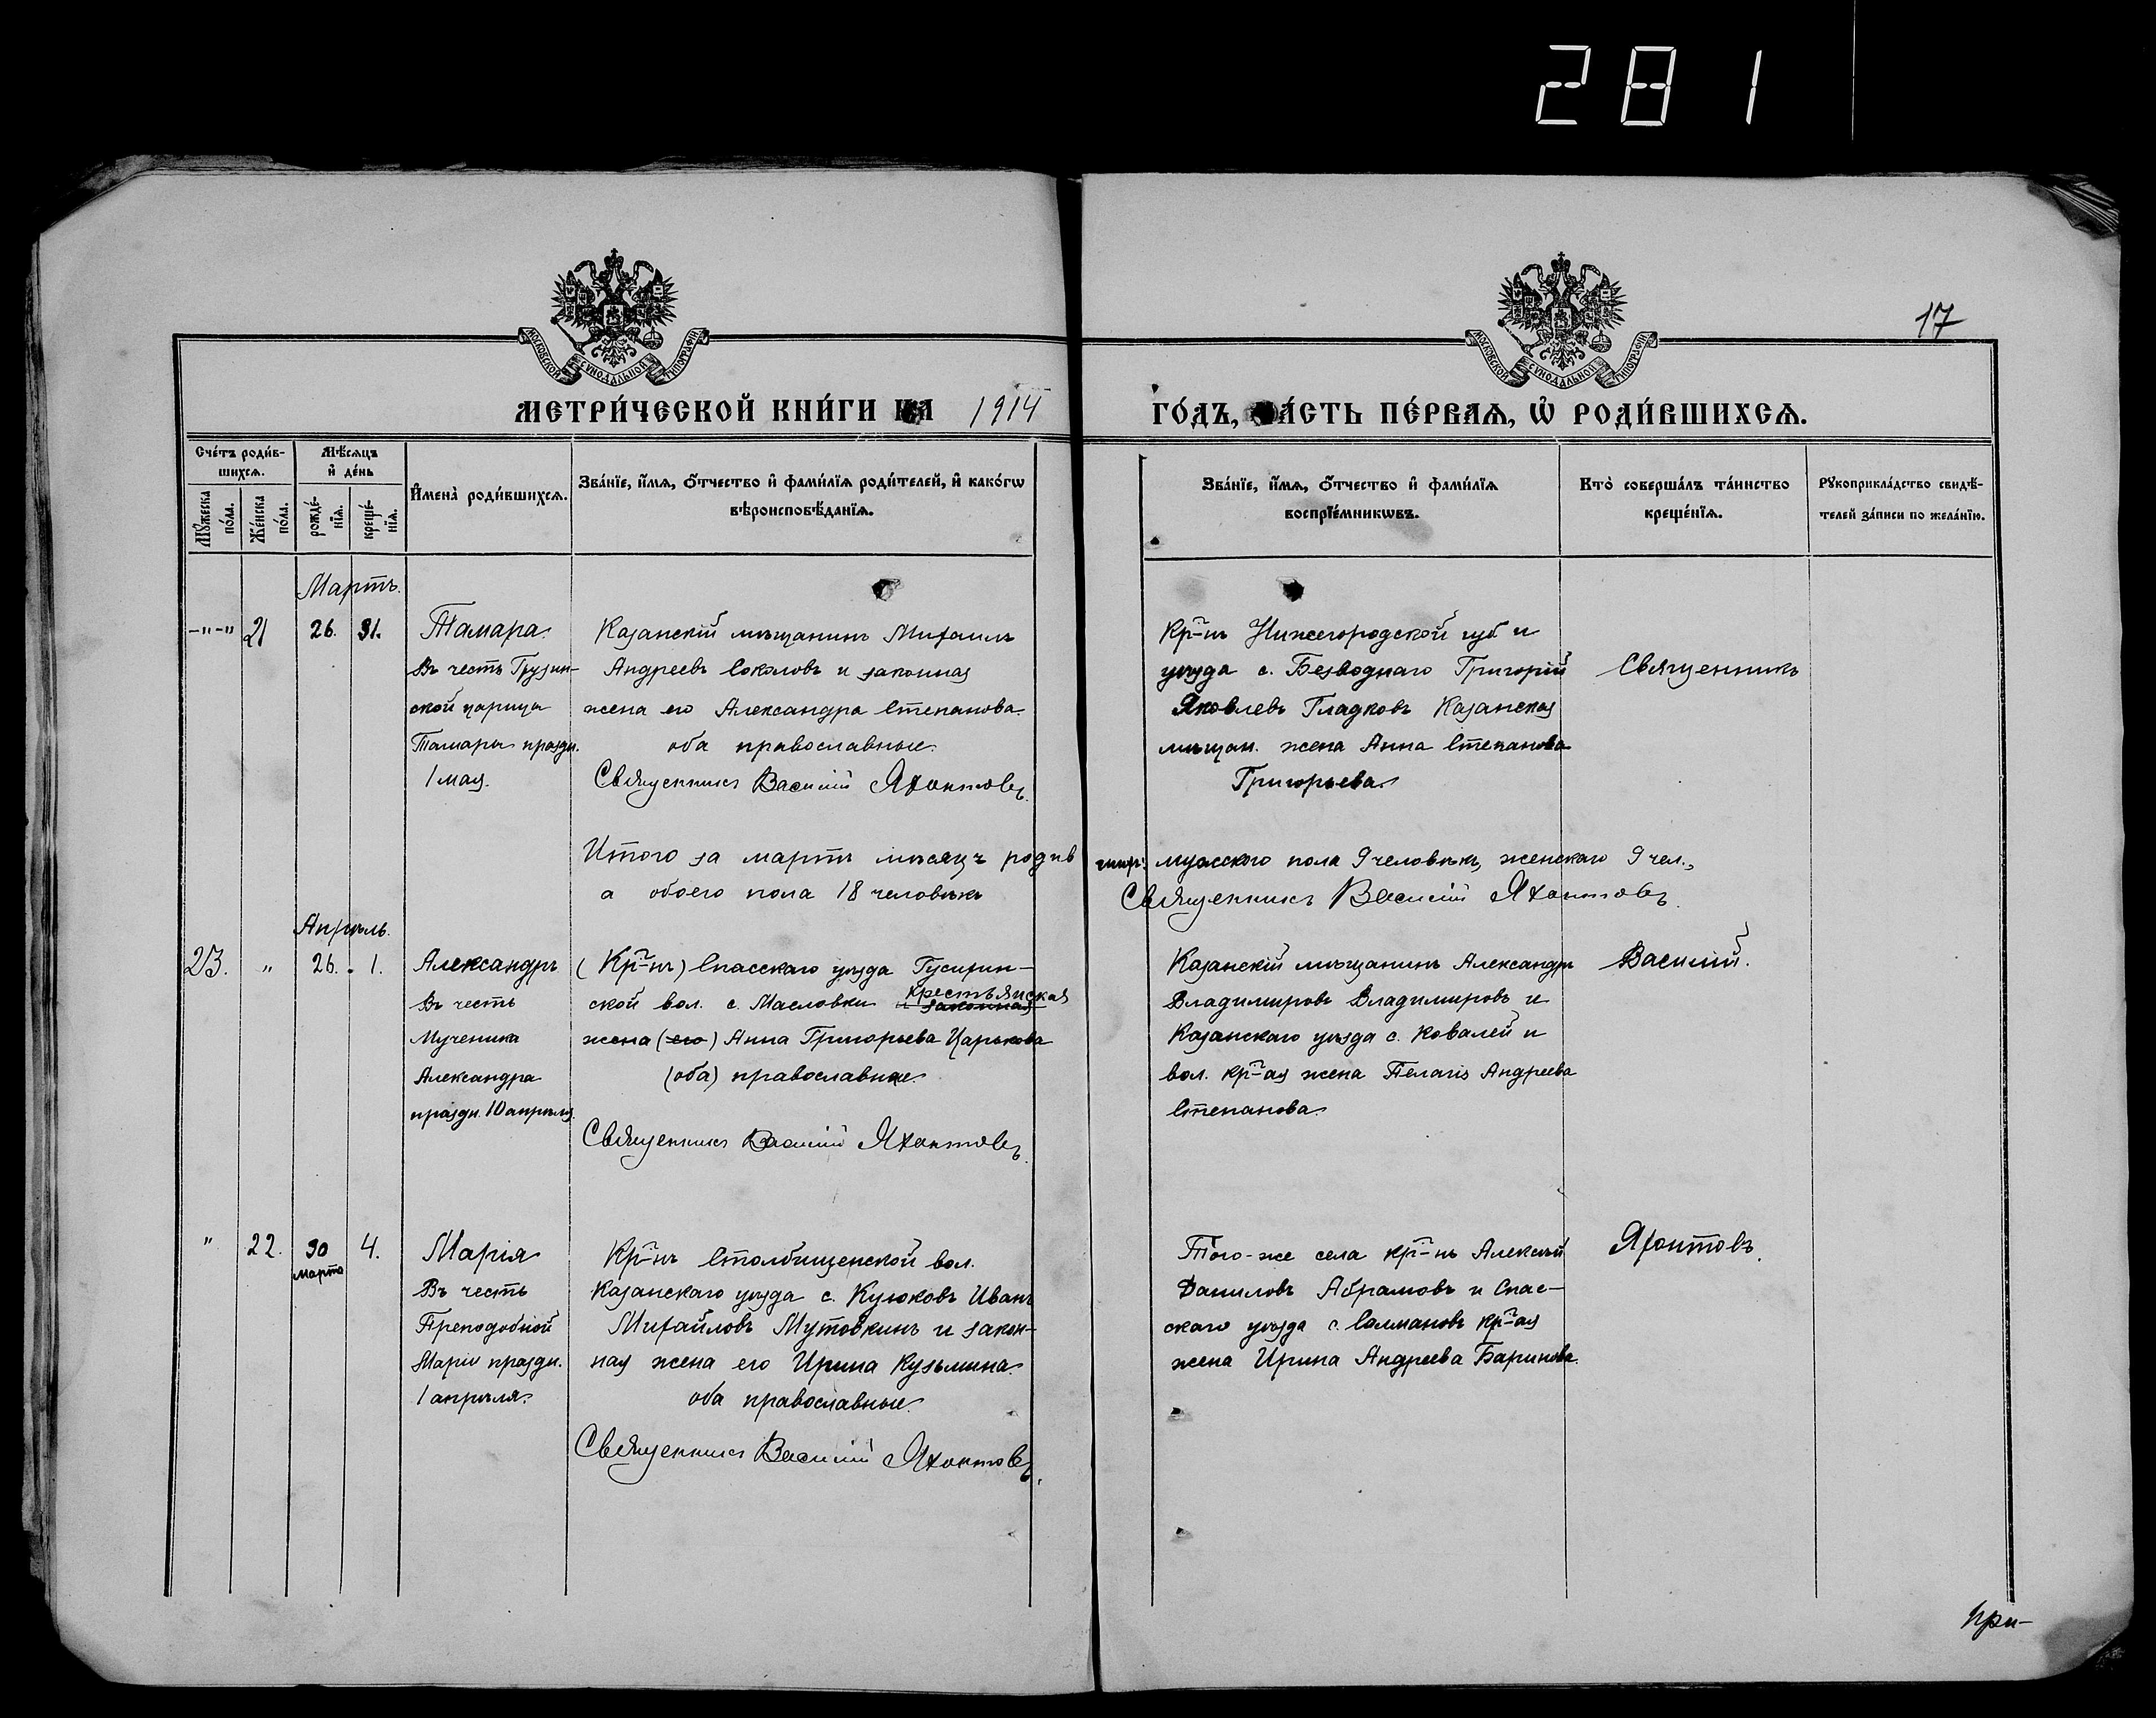 281
17
МОСКОВСКОЙ СѴНОДАЛЬНОЙ ТИПОГРАФІИ
МОСКОВСКОЙ СѴНОДАЛЬНОЙ ТИПОГРАФІИ
МЕТРИ́ЧЕСКОЙ КНИ́ГИ НА 1914 ГО́ДЪ, ЧА́СТЬ ПЕ́РВАѦ, Ѡ҆ РОДИ́ВШИХСѦ.
Сче́тъ роди́в-
шихсѧ.
Мѣ́сѧцъ
и҆ де́нь
Мꙋ́жеска
по́ла.
Же́нска
по́ла.
рожде́-
нїѧ.
креще́-
нїѧ.
И҆мена̀ роди́вшихсѧ.
Зва́нїе, и҆́мѧ, ѻ҆́тчество и҆ фами́лїѧ роди́телей, и҆ како́гѡ
вѣроисповѣ́данїѧ.
Зва́нїе, и҆́мѧ, ѻ҆́тчество и҆ фами́лїѧ
воспрїе́мникѡвъ.
Кто̀ соверша́лъ та́инство
креще́нїѧ.
Рꙋкоприкла́дство свидѣ́-
телей за́писи по жела́нїю.
Мартъ.
-"-" 21 26. 31.
Тамара.
Въ честь Грузин-
ской царицы
Тамары праздн.
1 мая.
Казанскій мѣщанинъ Михаилъ
Андреевъ Соколовъ и законная
жена его Александра Степанова.
оба православные.
Священникъ Василій Яхонтовъ.
Кр-нъ Нижегородской губ и
уѣзда с. Безводнаго Григорій
Яковлевъ Гладковъ Казанская
мѣщан. жена Анна Степанова
Григорьева.
Священникъ
Итого за мартъ мѣсяцъ родив шихъ: мужского пола 9 человѣкъ, женскаго 9 чел.,
а обоего пола 18 человѣкъ
Священникъ Василій Яхонтовъ.
Апрѣль.
23. " 26. 1.
Александръ
Въ честь
Мученика
Александра
праздн. 10 апрѣля.
(Кр-нъ) Спасскаго уѣзда
ской вол. с. Масловки и законная крестьянская
жена (его) Анна Григорьева Царькова
(оба) православные.
Священникъ Василій Яхонтовъ.
Казанскій мѣщанинъ Александръ
Владимировъ Владимировъ и
Казанскаго уѣзда с. Ковалей и
вол. кр-ая жена Пелагія Андреева
Степанова.
Василій.
" 22. 30 марта 4.
Марія
Въ честь
Преподобной
Маріи праздн.
1 апрѣля.
Кр-нъ Столбищенской вол.
Казанскаго уѣзда с. Кулюковъ Иванъ
Михайловъ Мутовкинъ и закон-
ная жена его Ирина Кузьмина.
оба православные.
Священникъ Василій Яхонтовъ.
Того-же села кр-нъ Алексѣй
Даниловъ Абрамовъ и Спас-
скаго уѣзда с. Салмановъ кр-ая
жена Ирина Андреева Баринова.
Яхонтовъ.
При-